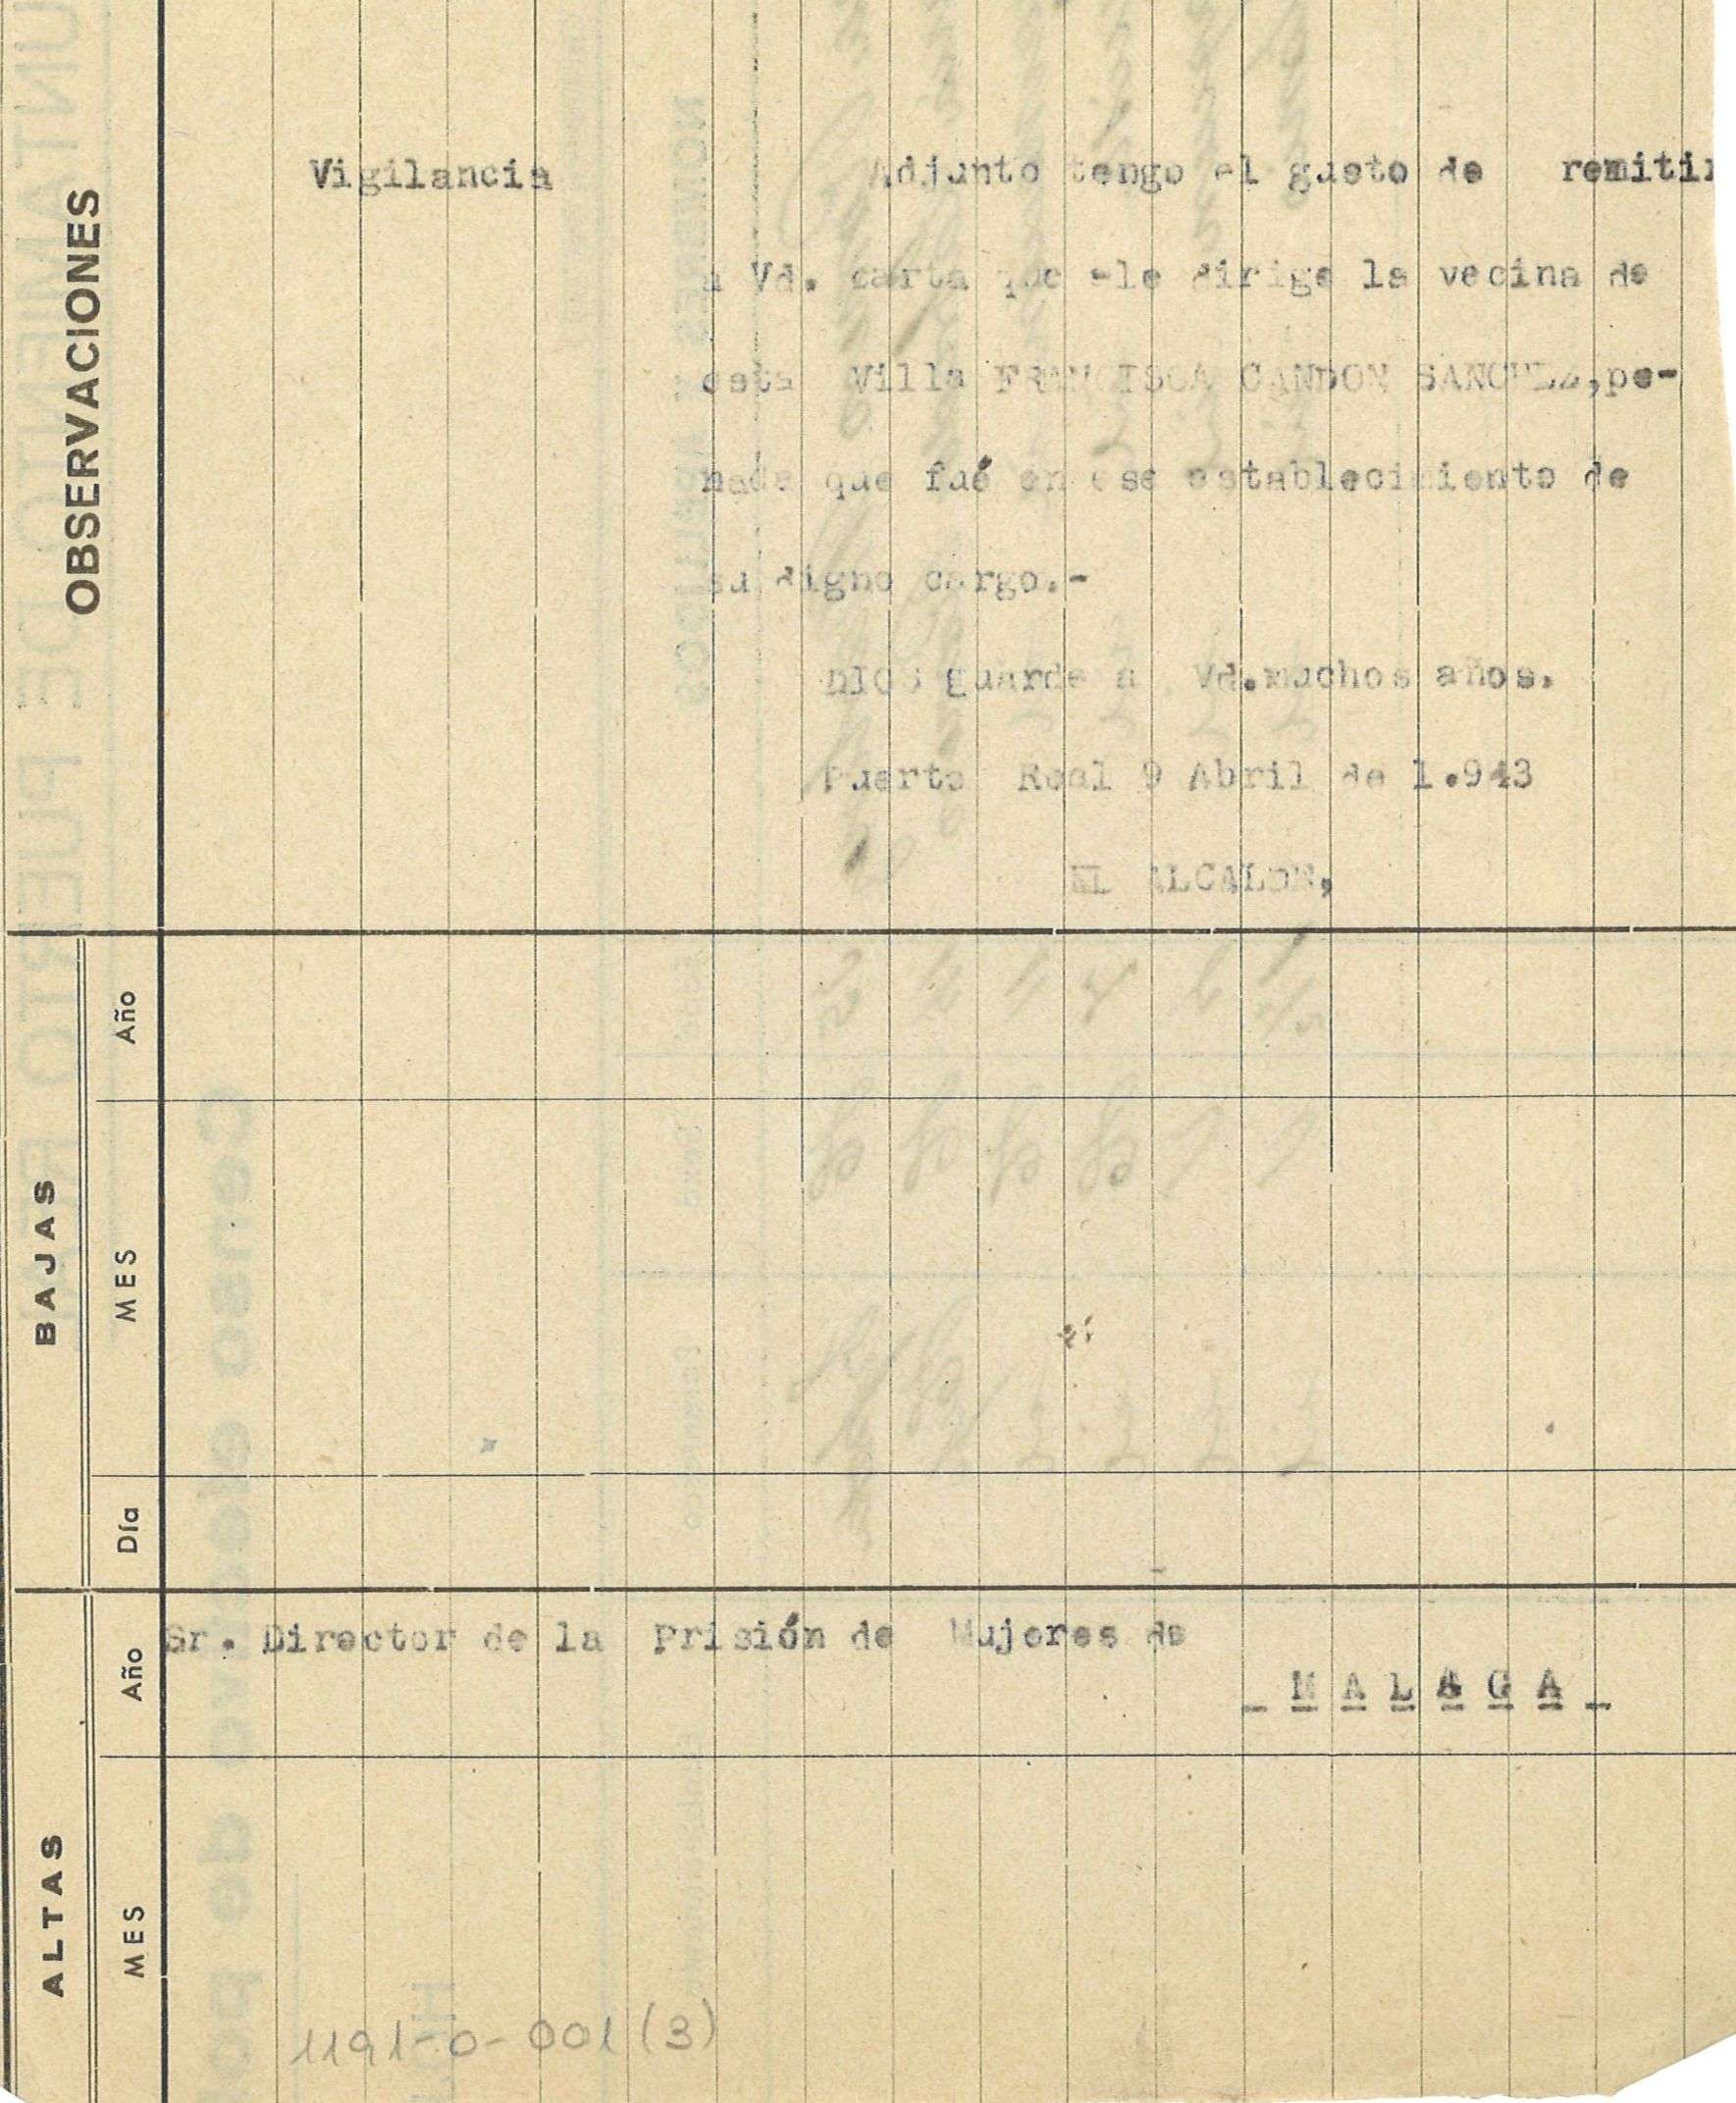 OBSERVACIONES
Vigilancia
Adjunto tengo el gusto de remitir
a Vd. carta que ele dirige la vecina de
esta Villa FRANCISCA CANDON SANCHEZ,pe-
nada que fué en ese establecimiento de
su digno cargo.-
DIOS guarde a Vd.muchos años.
Puerto Real 9 Abril de 1.943
EL ALCALDE,
BAJAS
Año
MES
Día
Sr. Director de la Prisión de Mujeres de
_ M A L A G A _
ALTAS
Año
MES
1191-0-001 (3)